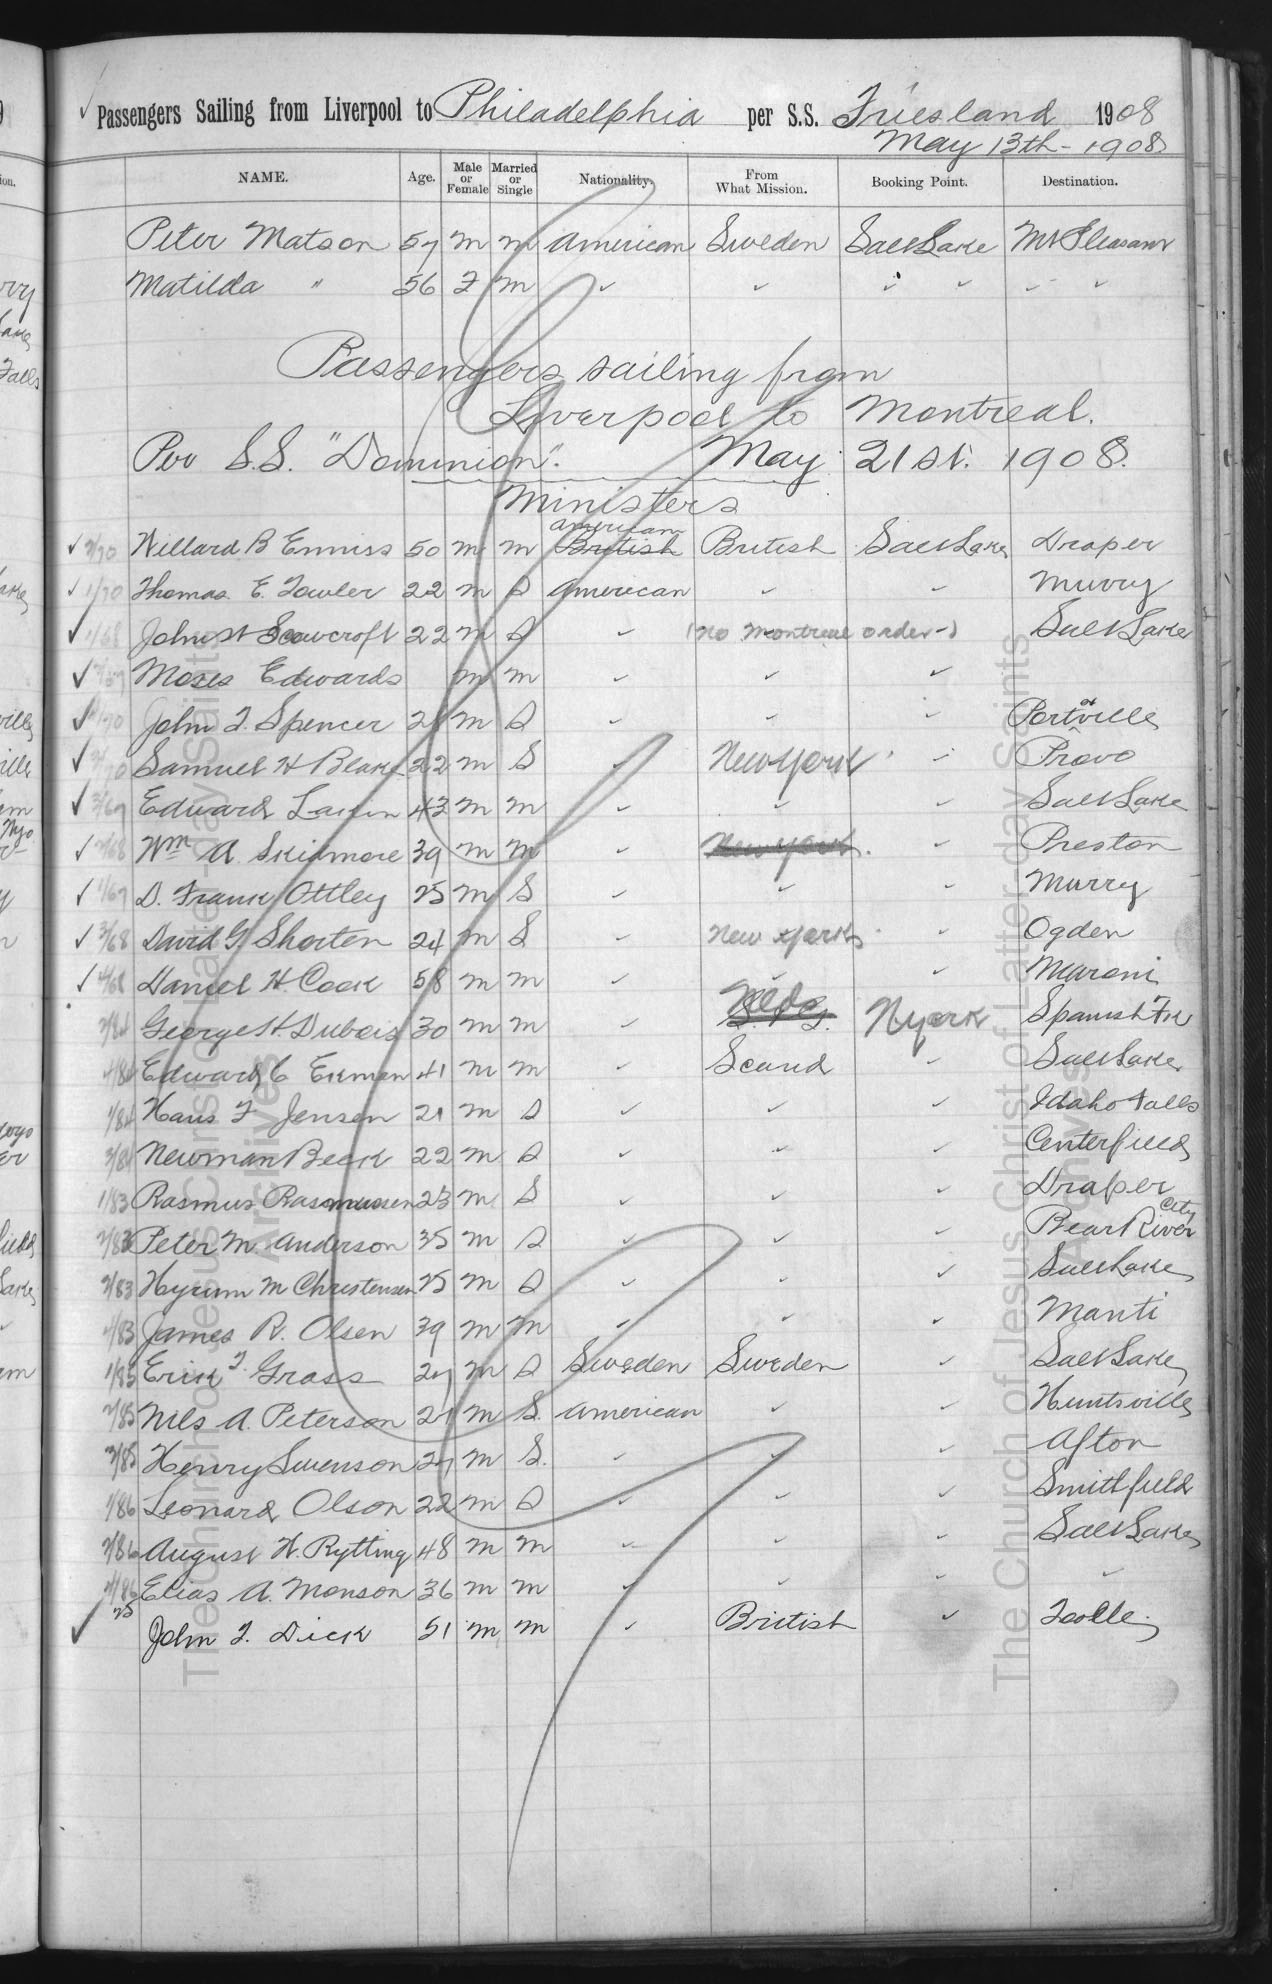 Passengers Sailing from Liverpool to Philadelphia per S.S. Friesland 1908
May 13th - 1908
NAME. Age. Male or Female Married or Single Nationality. From What Mission. Booking Point. Destination.
Peter Matson 57 m m American Sweden Salt Lake Mt Pleasant
Matilda " 56 F m ✓ ✓ ✓ ✓ ✓ ✓
Passengers sailing from
Liverpool to Montreal.
Per S.S. "Dominion". May 21st. 1908.
Ministers
American
✓ 2/70 Willard B Enniss 50 m m British British Salt Lake Draper
✓ 1/70 Thomas E. Towler 22 m S American ✓ ✓ Murry
✓ 1/68 John W Scowcroft 22 m S ✓ (No Montreal order -) Salt Lake
✓ Moses Edwards m m ✓ ✓ ✓
✓ John F. Spencer m S ✓ ✓ ✓ Portville
✓ Samuel H Blake 22 m S ✓ New York ✓ Provo
✓ 3/67 Edward Larkin 43 m m ✓ ✓ ✓ Salt Lake
✓ 2/68 Wm A. Skidmore 39 m m ✓ New York ✓ Preston
✓ 1/67 D. Frank Ottley 25 m S ✓ ✓ ✓ Murry
✓ 3/68 David G. Shorten 24 m S ✓ New York ✓ Ogden
✓ 4/68 Daniel H. Cook 58 m m ✓ ✓ ✓ Maroni
2/84 George H. Dubois 30 m m ✓ N York Spanish Frk
4/84 Edward C Ekman 41 m m ✓ Scand ✓ Salt Lake
1/84 Hans F Jensen 21 m S ✓ ✓ ✓ Idaho Falls
3/84 Newman Beck 22 m S ✓ ✓ ✓ Centerfield
1/83 Rasmus Rasmussen 23 m S ✓ ✓ ✓ Draper
2/83 Peter M. Anderson 35 m S ✓ ✓ ✓ Bear River City
3/83 Hyrum M Christensen 25 m S ✓ ✓ ✓ Salt Lake
4/83 James R. Olsen 39 m m ✓ ✓ ✓ Manti
1/85 Erick F. Grass 27 m S Sweden Sweden ✓ Salt Lake
2/85 Nils A. Peterson 27 m S. American ✓ ✓ Huntsville
3/85 Henry Swenson 27 m S. ✓ ✓ ✓ Afton
1/86 Leonard Olson 22 m S ✓ ✓ ✓ Smithfield
2/86 August H. Rytting 48 m m ✓ ✓ ✓ Salt Lake
4/86 Elias A. Monson 36 m m ✓ ✓ ✓ ✓
✓ 25 John F. Dick 51 m m ✓ British ✓ Tooele
The Church of Jesus Christ of Latter-day Saints
Archives
The Church of Jesus Christ of Latter-day Saints
Archives